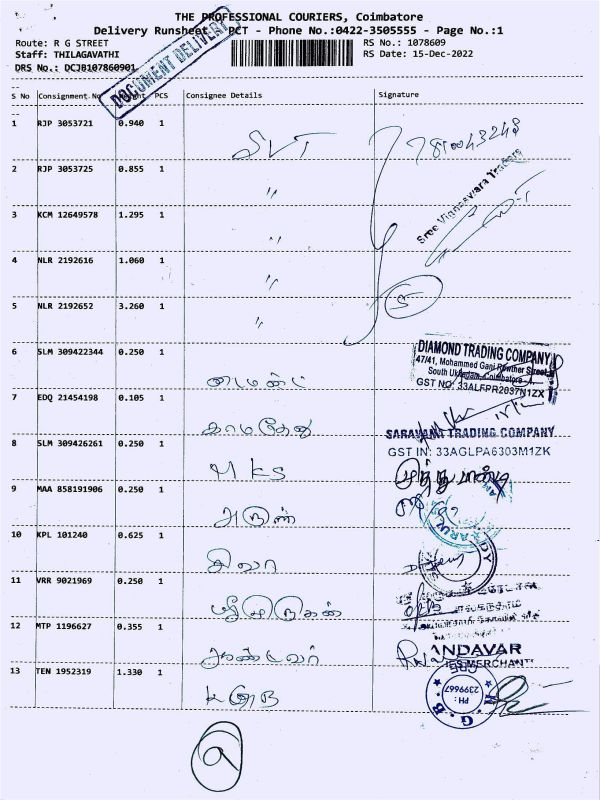 THE PROFESSIONAL COURIERS, Coimbatore
Delivery Runsheet PCT - Phone No.:0422-3505555 - Page No.:1
Route: R G STREET RS No.: 1078609
Staff: THILAGAVATHI RS Date: 15-Dec-2022
DRS No.: DCJB107860901
DOCUMENT DELIVERY
S No Consignment No PCS Consignee Details Signature
1 RJP 3053721 0.940 1 SVT
2 RJP 3053725 0.855 1 〃
Sree Vigneswara Traders
3 KCM 12649578 1.295 1 〃
4 NLR 2192616 1.060 1 〃
5 NLR 2192652 3.260 1 〃 5
6 SLM 309422344 0.250 1 டைமண்ட்
DIAMOND TRADING COMPANY
47/41, Mohammed Gani Rowther Street
South Ukkadam, Coimbatore
GST NO: 33ALFPR2037N1ZX
7 EDQ 21454198 0.105 1 காமதேனு
SARAVANA TRADING COMPANY
GST IN: 33AGLPA6303M1ZK
8 SLM 309426261 0.250 1 MKS
9 MAA 858191906 0.250 1 அருண்
10 KPL 101240 0.625 1 சிவா
11 VRR 9021969 0.250 1 ஸ்ரீமுருகன்
12 MTP 1196627 0.355 1 ஆண்டவர்
ANDAVAR
MERCHANT
13 TEN 1952319 1.330 1
G. B. N
PH: 2399667